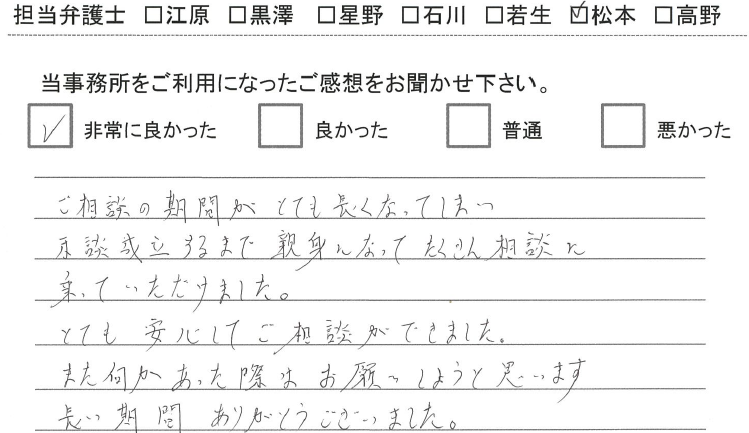 担当弁護士 □江原 □黒澤 □星野 □石川 □若生 ☑松本 □高野
当事務所をご利用になったご感想をお聞かせ下さい。
☑ 非常に良かった □ 良かった □ 普通 □ 悪かった
ご相談の期間がとても長くなってしまい
示談成立するまで親身になってたくさん相談に
乗っていただけました。
とても安心してご相談ができました。
また何かあった際はお願いしようと思います
長い期間ありがとうございました。